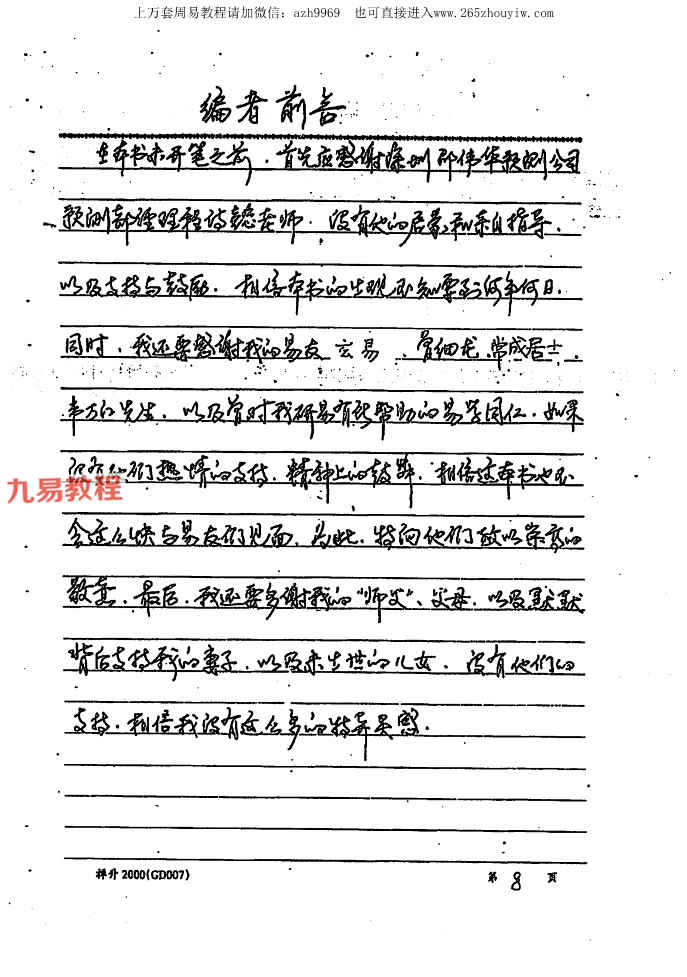 上万套周易教程请加微信：azh9969 也可直接进入www.265zhouyiw.com
编者前言
在本书未开笔之前，首先应感谢深圳邵伟华预测公司
预测部经理程诗老师，没有他的启蒙和亲自指导，
以及支持与鼓励，相信本书的出现不知要到何年何日，
同时，我还要感谢我的易友玄易、曾细龙、常成居士、
先生，以及曾对我研易有所帮助的易学同仁，如果
没有他们热情的支持，精神上的鼓舞，相信这本书也不
九易教程
会这么快与易友们见面，为此，特向他们致以崇高的
敬意，最后，我还要多谢我的“师父”、父母，以及默默
背后支持我的妻子，以及未出世的儿女，没有他们的
支持，相信我没有这么多的特异灵感。
祥升2000(GD007)
第 8 页